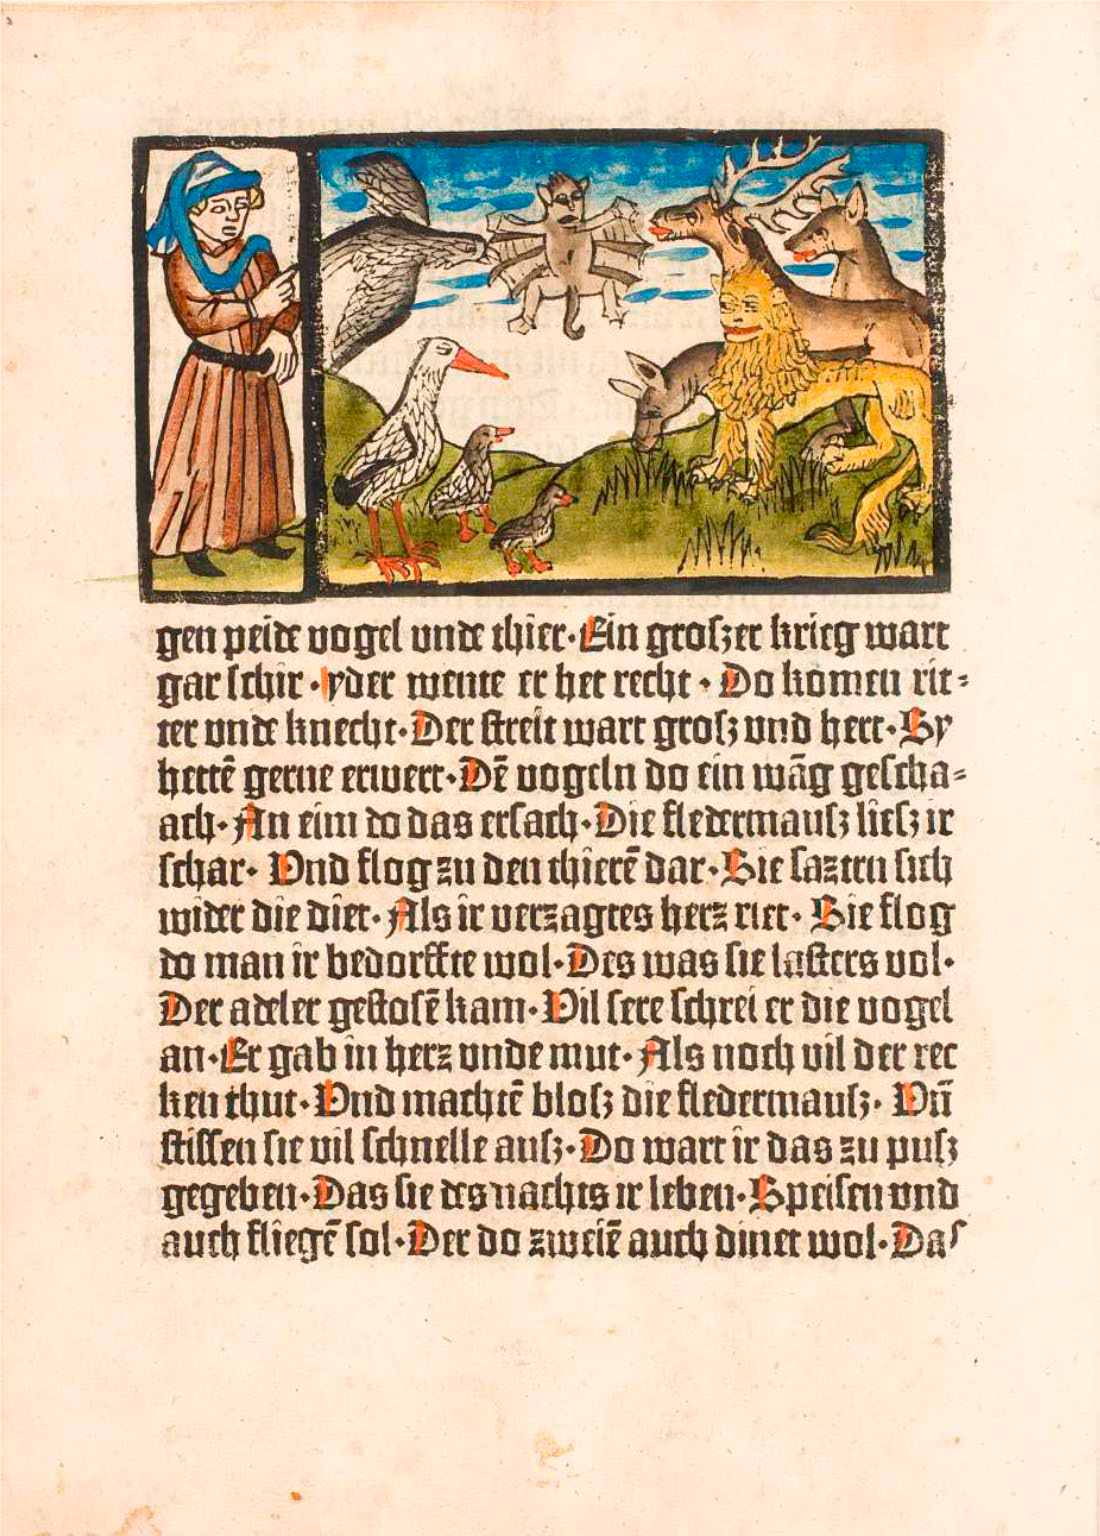 gen peide vogel unde thier·Ein groſzer krieg wart
gar ſchir·yder meute er het recht·Do komen rit⸗
ter unde knecht·Der ſtreit wart groſz und hert·Sy
hettē gerne erwert·Dē vogeln do ein wāg geſcha⸗
ach·An eim do das erſach·Die fledermauſz lieſz ir
ſchar·Vnd flog zu den thierē dar·Sie ſazten ſich
wider die diet·Als ir verzagtes herz riet·Sie flog
do man ir bedorffte wol·Des was ſie laſters vol·
Der adeler geſtoſē kam·Vil ſere ſchrei er die vogel
an·Er gab in herz unde mut·Als noch vil der rec
ken thut·Vnd machtē bloſz die fledermauſz·Vñ
ſtiſſen ſie vil ſchnelle auſz·Do wart ir das zu puſz
gegeben·Das ſie des nachts ir leben·Speiſen und
auch fliegē ſol·Der do zweiē auch dinet wol·Das